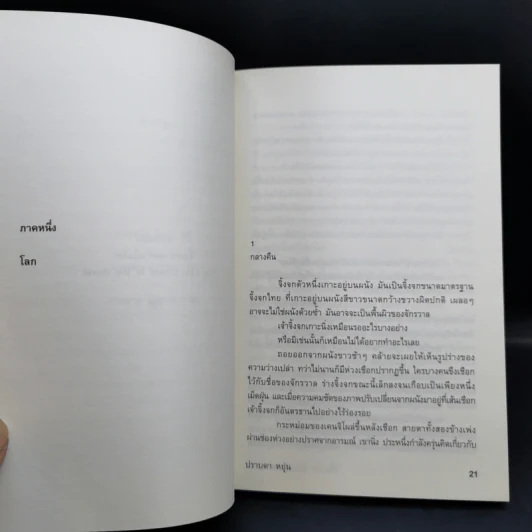 ภาคหนึ่ง
โลก
1
กลางคืน
จิ้งจกตัวหนึ่งเกาะอยู่บนผนัง มันเป็นจิ้งจกขนาดมาตรฐาน
จิ้งจกไทย ที่เกาะอยู่บนผนังสีขาวขนาดกว้างขวางผิดปกติ เผลอๆ
อาจจะไม่ใช่ผนังด้วยซ้ำ มันอาจจะเป็นพื้นผิวของจักรวาล
เจ้าจิ้งจกเกาะนิ่งเหมือนรออะไรบางอย่าง
หรือมิเช่นนั้นก็เหมือนไม่ได้อยากทำอะไรเลย
ถอยออกจากผนังขาวช้าๆ คล้ายจะเผยให้เห็นรูปร่างของ
ความว่างเปล่า ทว่าไม่นานก็มีห่วงเชือกปรากฏขึ้น ใครบางคนขึงเชือก
ไว้กับขื่อของจักรวาล ร่างจิ้งจกขณะนี้เล็กลงจนเกือบเป็นเพียงหนึ่ง
เม็ดฝุ่น และเมื่อความคมชัดของภาพปรับเปลี่ยนจากผนังมาอยู่ที่เส้นเชือก
เจ้าจิ้งจกก็อันตรธานไปอย่างไร้ร่องรอย
กระหม่อมของเคนจิโผล่ขึ้นหลังเชือก สายตาทั้งสองข้างเพ่ง
ผ่านช่องห่วงอย่างปราศจากอารมณ์ เขานิ่ง ประหนึ่งกำลังครุ่นคิดเกี่ยวกับ
ปราบดา หยุ่น
21